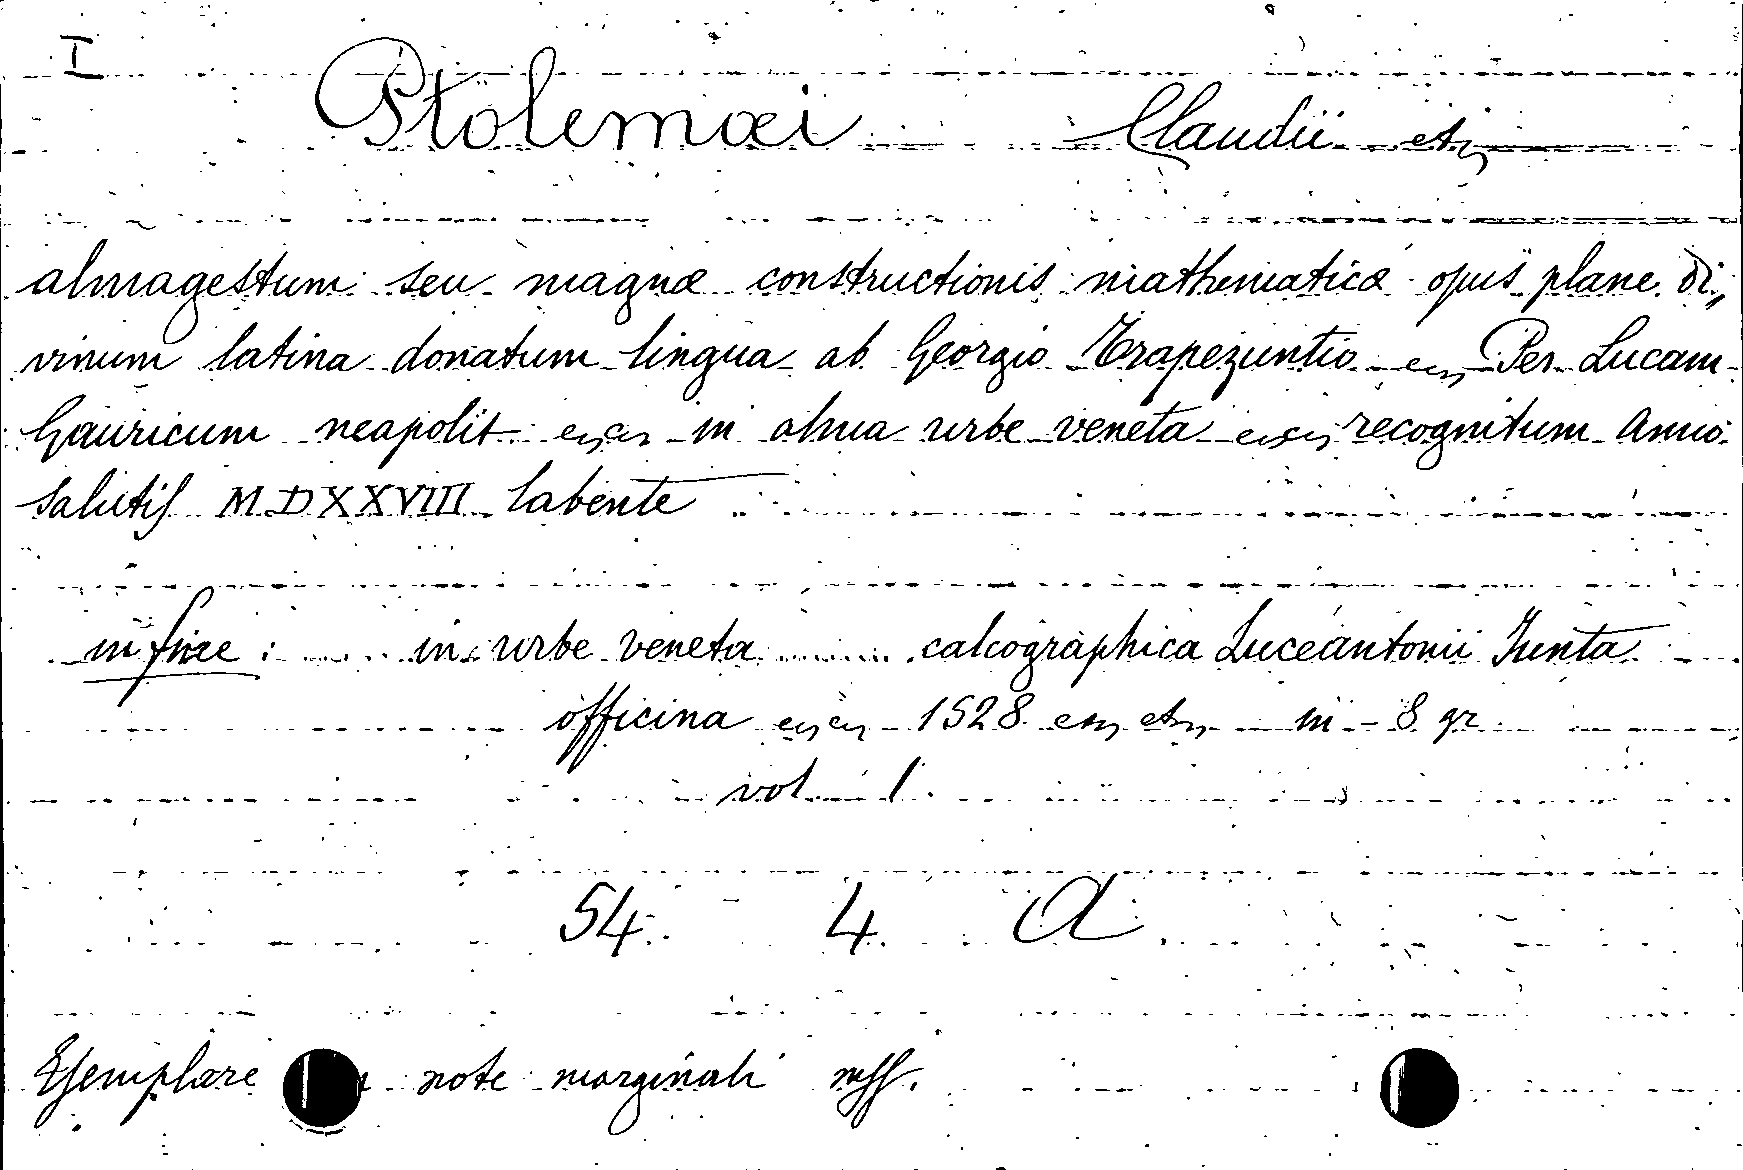 I
Ptolemæi Claudii etc
almagestum seu magnæ constructionis mathematicæ opus plane di,,
vinum latina donatum lingua ab Georgio Trapezuntio ecc Per Lucam
Gauricum neapolit ecc ecc in alma urbe veneta ecc ecc recognitum anno
salutis MDXXVIII labente
in fine : ...... in urbe veneta ......... calcographica Luceantonii Junta
officina ecc ecc 1528 ecc etc in - 8 gr
vol 1.
54. 4. A
Esemplare note marginali mss.